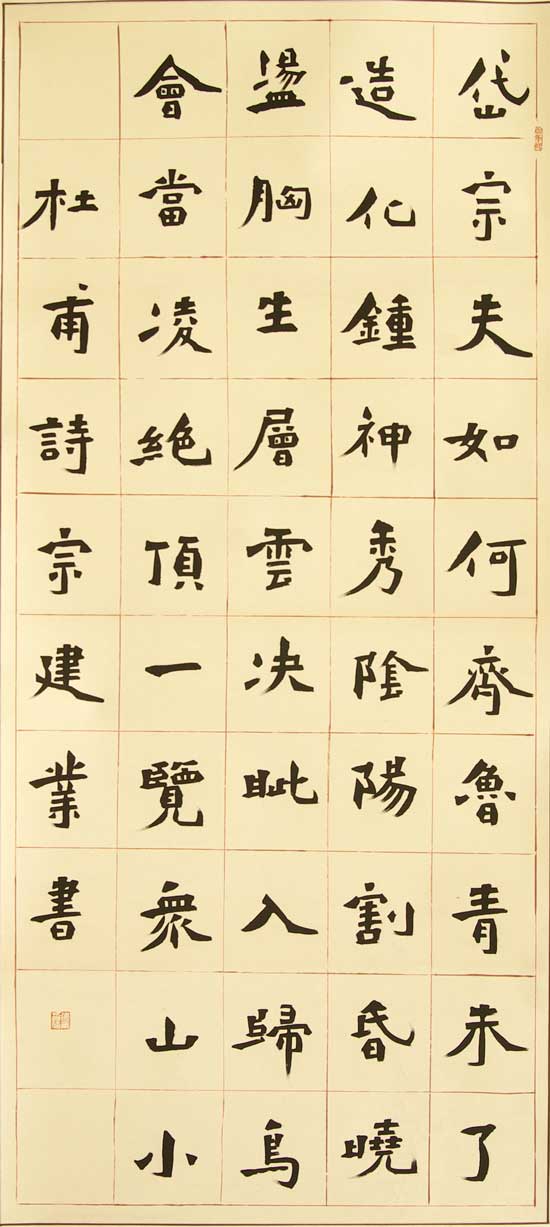 岱宗夫如何齊魯青未了
造化鍾神秀陰陽割昏曉
盪胸生層雲决眦入歸鳥
會當凌絶頂一覽衆山小
杜甫詩宗建業書